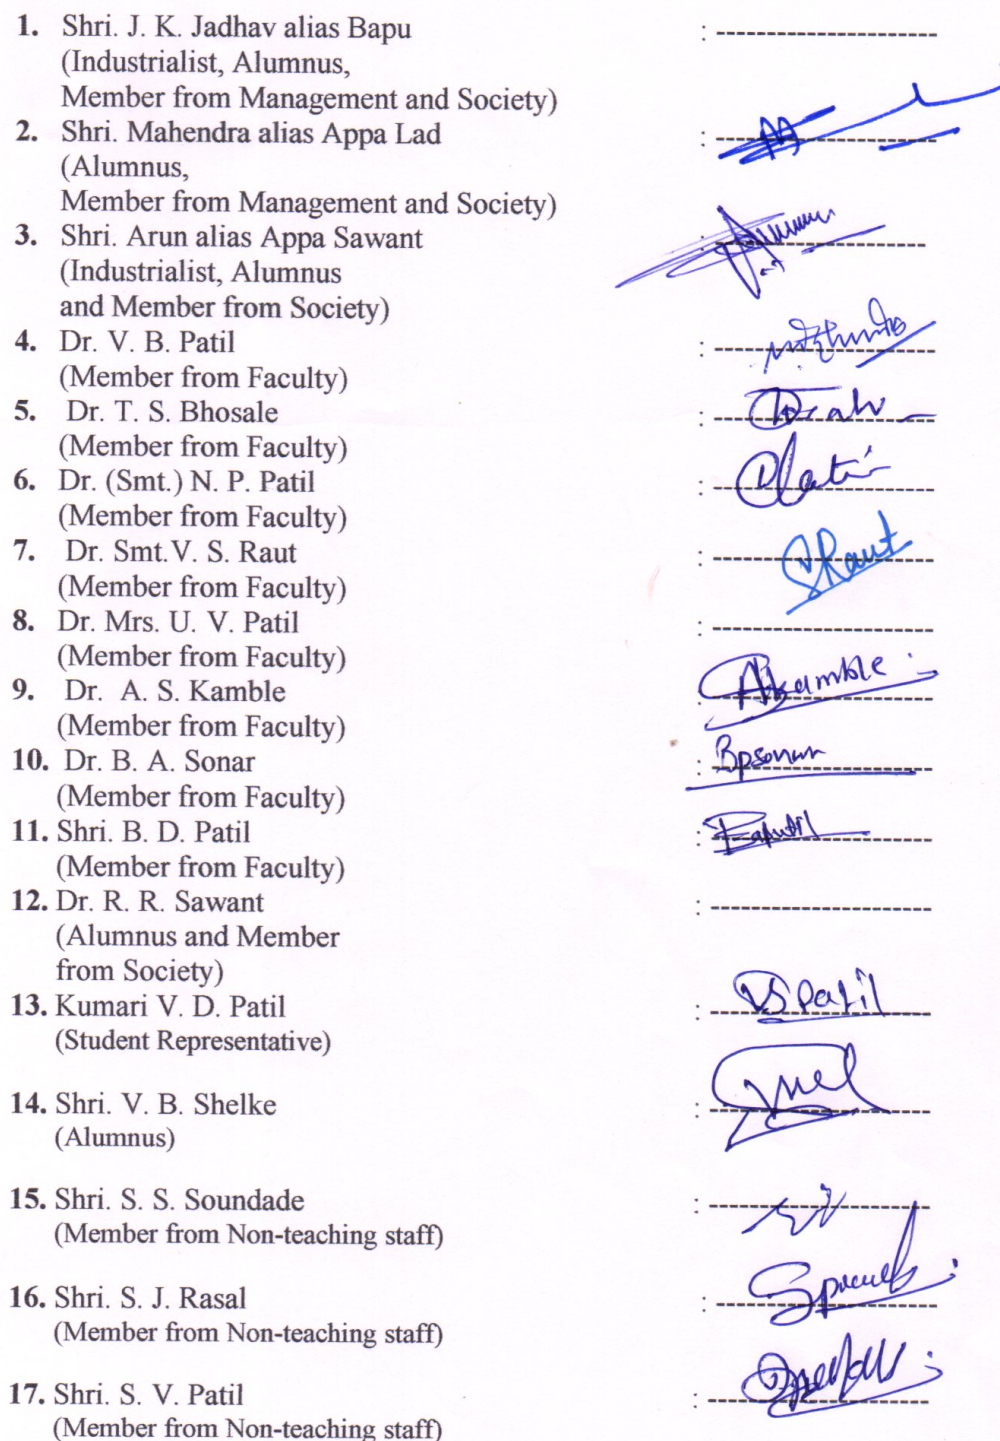 1. Shri. J. K. Jadhav alias Bapu : ----------------------
(Industrialist, Alumnus,
Member from Management and Society)
2. Shri. Mahendra alias Appa Lad : ----------------------
(Alumnus,
Member from Management and Society)
3. Shri. Arun alias Appa Sawant : ----------------------
(Industrialist, Alumnus
and Member from Society)
4. Dr. V. B. Patil : ----------------------
(Member from Faculty)
5. Dr. T. S. Bhosale : ----------------------
(Member from Faculty)
6. Dr. (Smt.) N. P. Patil : ----------------------
(Member from Faculty)
7. Dr. Smt.V. S. Raut : ---------------------- VRaut
(Member from Faculty)
8. Dr. Mrs. U. V. Patil : ----------------------
(Member from Faculty)
9. Dr. A. S. Kamble : ---------------------- AKamble
(Member from Faculty)
10. Dr. B. A. Sonar : ----------------------
(Member from Faculty)
11. Shri. B. D. Patil : ----------------------
(Member from Faculty)
12. Dr. R. R. Sawant : ----------------------
(Alumnus and Member
from Society)
13. Kumari V. D. Patil : ---------------------- Patil
(Student Representative)
14. Shri. V. B. Shelke : ----------------------
(Alumnus)
15. Shri. S. S. Soundade : ----------------------
(Member from Non-teaching staff)
16. Shri. S. J. Rasal : ----------------------
(Member from Non-teaching staff)
17. Shri. S. V. Patil : ----------------------
(Member from Non-teaching staff)